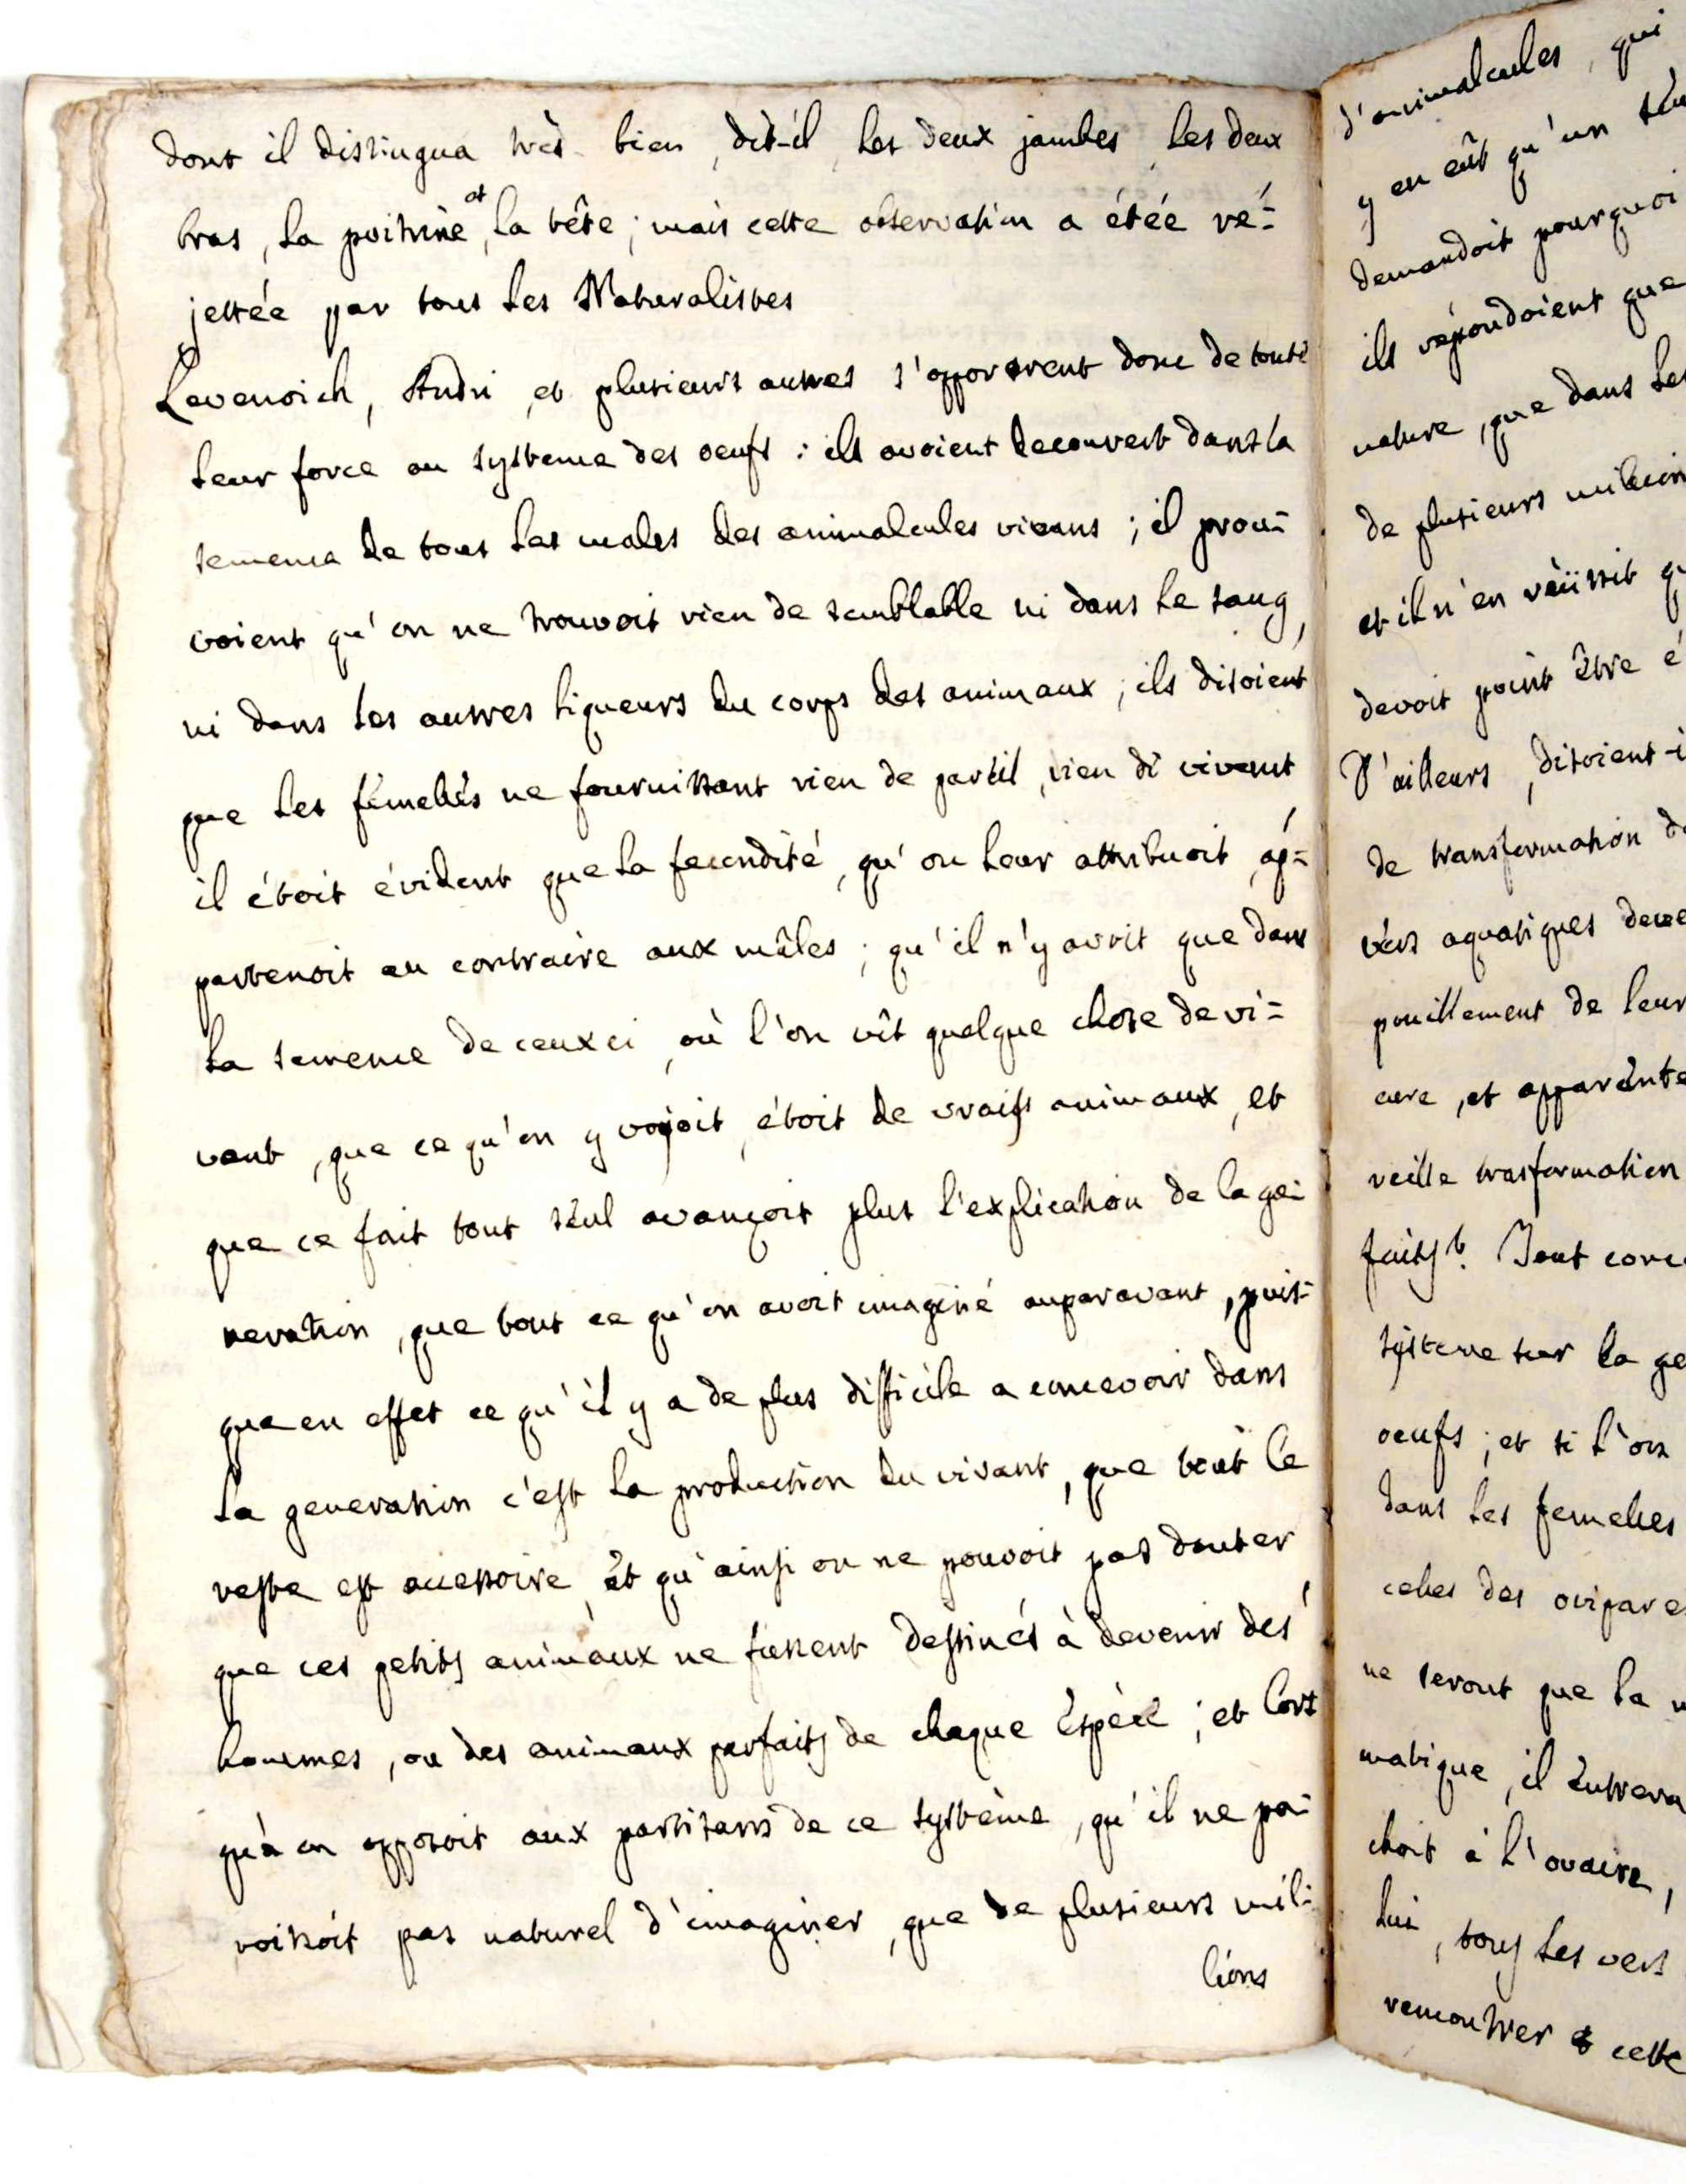 dont il distingua très bien, dit-il, les deux jambes, les deux
bras, la poitrine, et la tête ; mais cette observation a étée ré=
jettée par tous les Naturalistes
Levenoich, Andri, et plusieurs autres s'opposerent donc de toute
leur force au systeme des oeufs : ils avoient decouvert dans la
semence de tous les males des animalcules vivans ; il prou=
voient qu'on ne trouvoit rien de semblable ni dans le sang,
ni dans les autres liqueurs du corps des animaux ; ils disoient
que les fémelles ne fournissant rien de pareil, rien de vivant
il étoit évident que la fecondité, qu'on leur attribuoit, ap=
partenoit au contraire aux mâles ; qu'il n'y avoit que dans
la semence de ceux ci, où l'on vît quelque chose de vi=
vant, que ce qu'on y voyoit, étoit de vraifs animaux, et
que ce fait tout seul avançoit plus l'explication de la ge=
neration, que tout ce qu'on avoit imaginé auparavant, puis=
que en effet ce qu'il y a de plus difficile a concevoir dans
la generation c'est la production du vivant, que tout le
reste est accessoire, et qu'ainsi on ne pouvoit pas douter,
que ces petits animaux ne fussent destinés à devenir des
hommes, ou des animaux parfaits de chaque éspèce ; et lors
qu'on opposoit aux partisans de ce système, qu'il ne pa=
roissoit pas naturel d'imaginer, que de plusieurs mil=
lions
d'animalcules, qui
y en eût qu'un
demandoit pourquoi
ils répondoient que
nature, que dans les
de plusieurs
et il n'en réüissit
devoit point être
D'ailleurs, disoient-i
de transformation
vers aquatiques
pouillement de leur
cure, et apparente
veille trasformation
faits b. Tout
systeme sur la ge
oeufs ; et si l'on
dans les femelles
celles des ovipare
ne seront que la
matique, il
choit à l'ovaire,
lui, tous les vers
remontrer cette